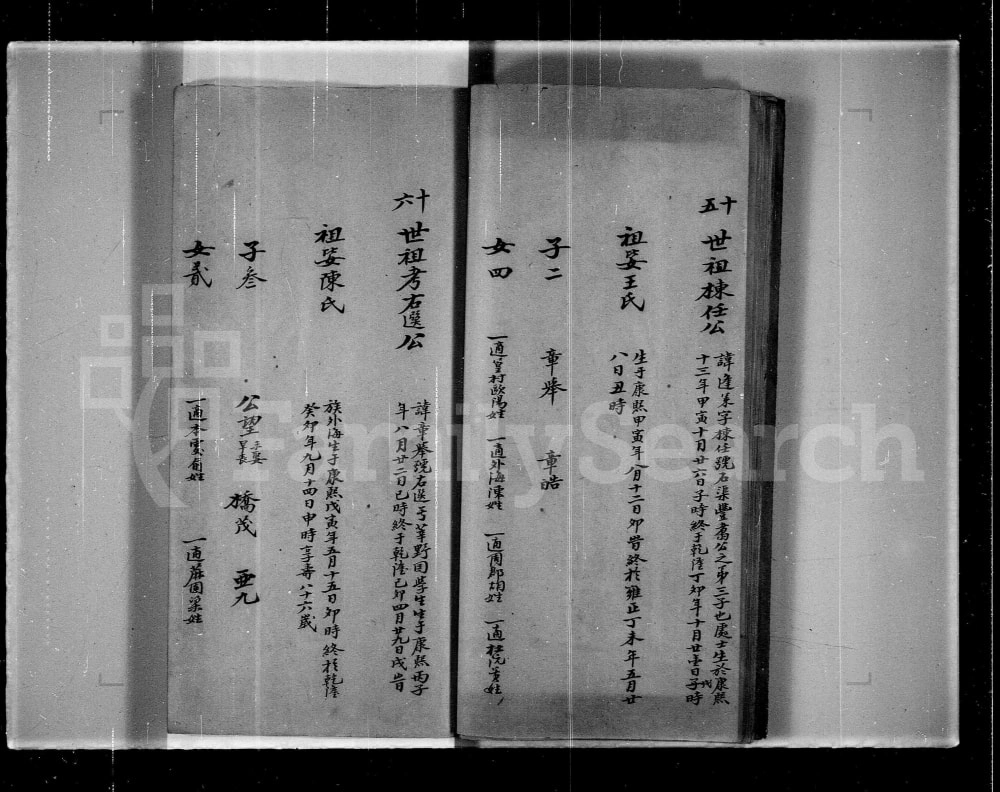 十五世祖棟任公
諱逢 字棟任號石渠豐 公之第三子也處士生於康熙
十三年甲寅十月廿六日子時終于乾隆丁卯年十月廿 日子時
祖妣王氏
生于康熙甲寅年八月十二日卯時終於雍正丁未年五月廿
八日丑時
子二 章舉 章皓
女四 一適 村歐陽姓 一適外海陳姓 一適周郡 姓 一適杜阮黃姓
十六世祖考石選公
諱章舉號石選 莘野國學生生于康熙丙子
年八月廿二日巳時終于乾隆己卯四月廿九日戌時
祖妣陳氏
族外海生于康熙戊寅年五月十五日卯時終於乾隆
癸卯年九月十四日申時享壽八十六歲
子叁 公望 未娶早喪 橋茂 亞九
女貳 一適 姓 一適蔴園梁姓
FamilySearch